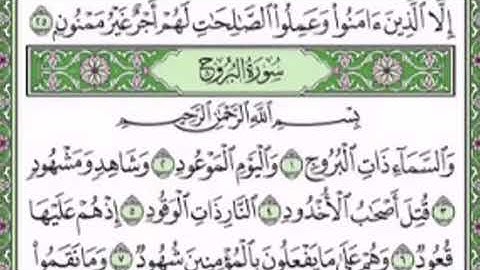 إِلَّا ٱلَّذِينَ ءَامَنُوا۟ وَعَمِلُوا۟ ٱلصَّٰلِحَٰتِ لَهُمْ أَجْرٌ غَيْرُ مَمْنُونٍۭ ٢٥
سُورَةُ الْبُرُوجِ
بِسْمِ ٱللَّهِ ٱلرَّحْمَٰنِ ٱلرَّحِيمِ
وَٱلسَّمَآءِ ذَاتِ ٱلْبُرُوجِ ١ وَٱلْيَوْمِ ٱلْمَوْعُودِ ٢ وَشَاهِدٍ وَمَشْهُودٍ
٣ قُتِلَ أَصْحَٰبُ ٱلْأُخْدُودِ ٤ ٱلنَّارِ ذَاتِ ٱلْوَقُودِ ٥ إِذْ هُمْ عَلَيْهَا
قُعُودٌ ٦ وَهُمْ عَلَىٰ مَا يَفْعَلُونَ بِٱلْمُؤْمِنِينَ شُهُودٌ ٧ وَمَا نَقَمُوا۟